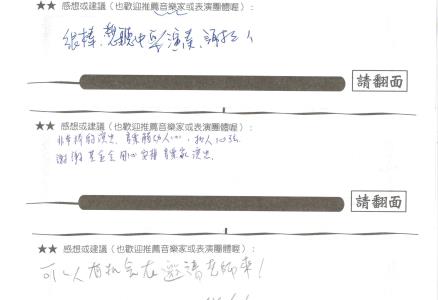 ★★ 感想或建議（也歡迎推薦音樂家或表演團體喔）：
很棒,想聽中
請翻面
★★ 感想或建議（也歡迎推薦音樂家或表演團體喔）：
非常棒的演出,音樂
謝謝基金會用心安排音樂家演出.
請翻面
★★ 感想或建議（也歡迎推薦音樂家或表演團體喔）：
可以有机会在邀請老師來!